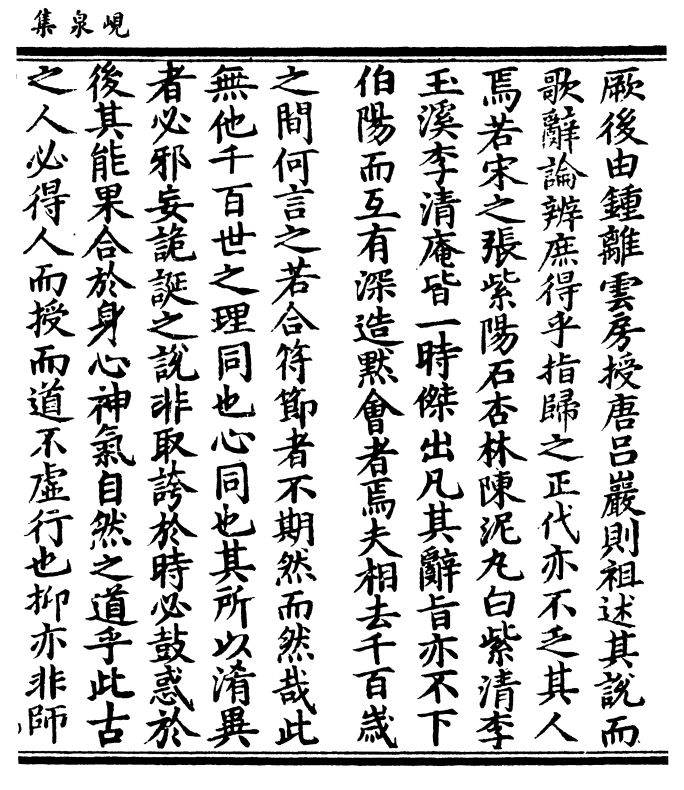 峴泉集
厥後由鍾離雲房授唐呂巖則祖述其說而
歌辭論辨庶得乎指歸之正代亦不乏其人
焉若宋之張紫陽石杏林陳泥丸白紫清李
玉溪李清庵皆一時傑出凡其辭旨亦不下
伯陽而互有深造黙會者焉夫相去千百歲
之間何言之若合符節者不期然而然哉此
無他千百世之理同也心同也其所以淆異
者必邪妄詭誕之說非取誇於時必鼓惑於
後其能果合於身心神氣自然之道乎此古
之人必得人而授而道不虛行也抑亦非師